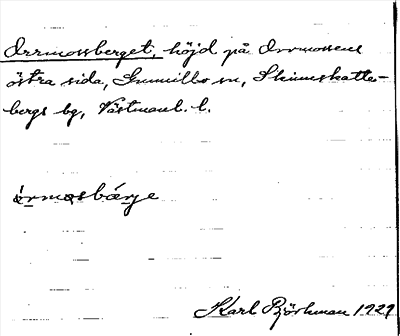 Orrmossberget, höjd på Orrmossens
östra sida, Gunnilbo sn, Skinnskatte-
bergs bg, Västmanl. l.
òrmosbárje
Karl Björkman 1929